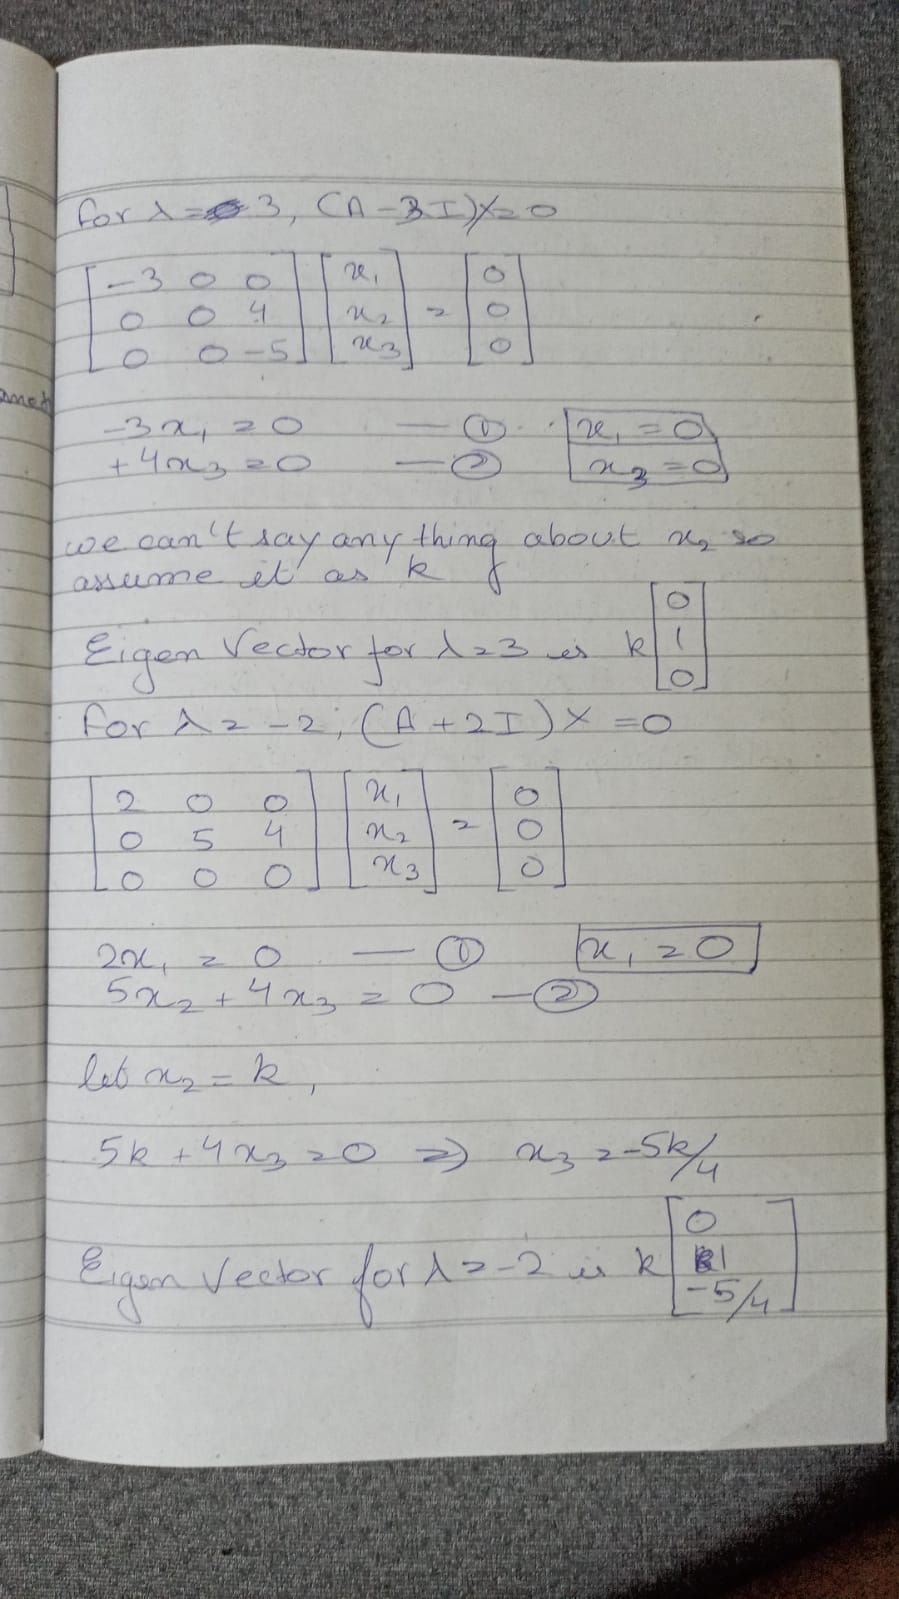 for λ = 3, (A - 3I)X = 0
[-3 0 0] [x₁] = [0]
[0 0 4] [x₂] [0]
[0 0 -5] [x₃] [0]
-3x₁ = 0 — ① x₁ = 0
+4x₃ = 0 — ② x₃ = 0
we can't say any thing about x₂ so
assume it as k
Eigen Vector for λ = 3 is k [0 1 0]
for λ = -2, (A + 2I)X = 0
[2 0 0] [x₁] = [0]
[0 5 4] [x₂] [0]
[0 0 0] [x₃] [0]
2x₁ = 0 — ① x₁ = 0
5x₂ + 4x₃ = 0 — ②
let x₂ = k,
5k + 4x₃ = 0 ⇒ x₃ = -5k/4
Eigen Vector for λ = -2 is k [0 1 -5/4]